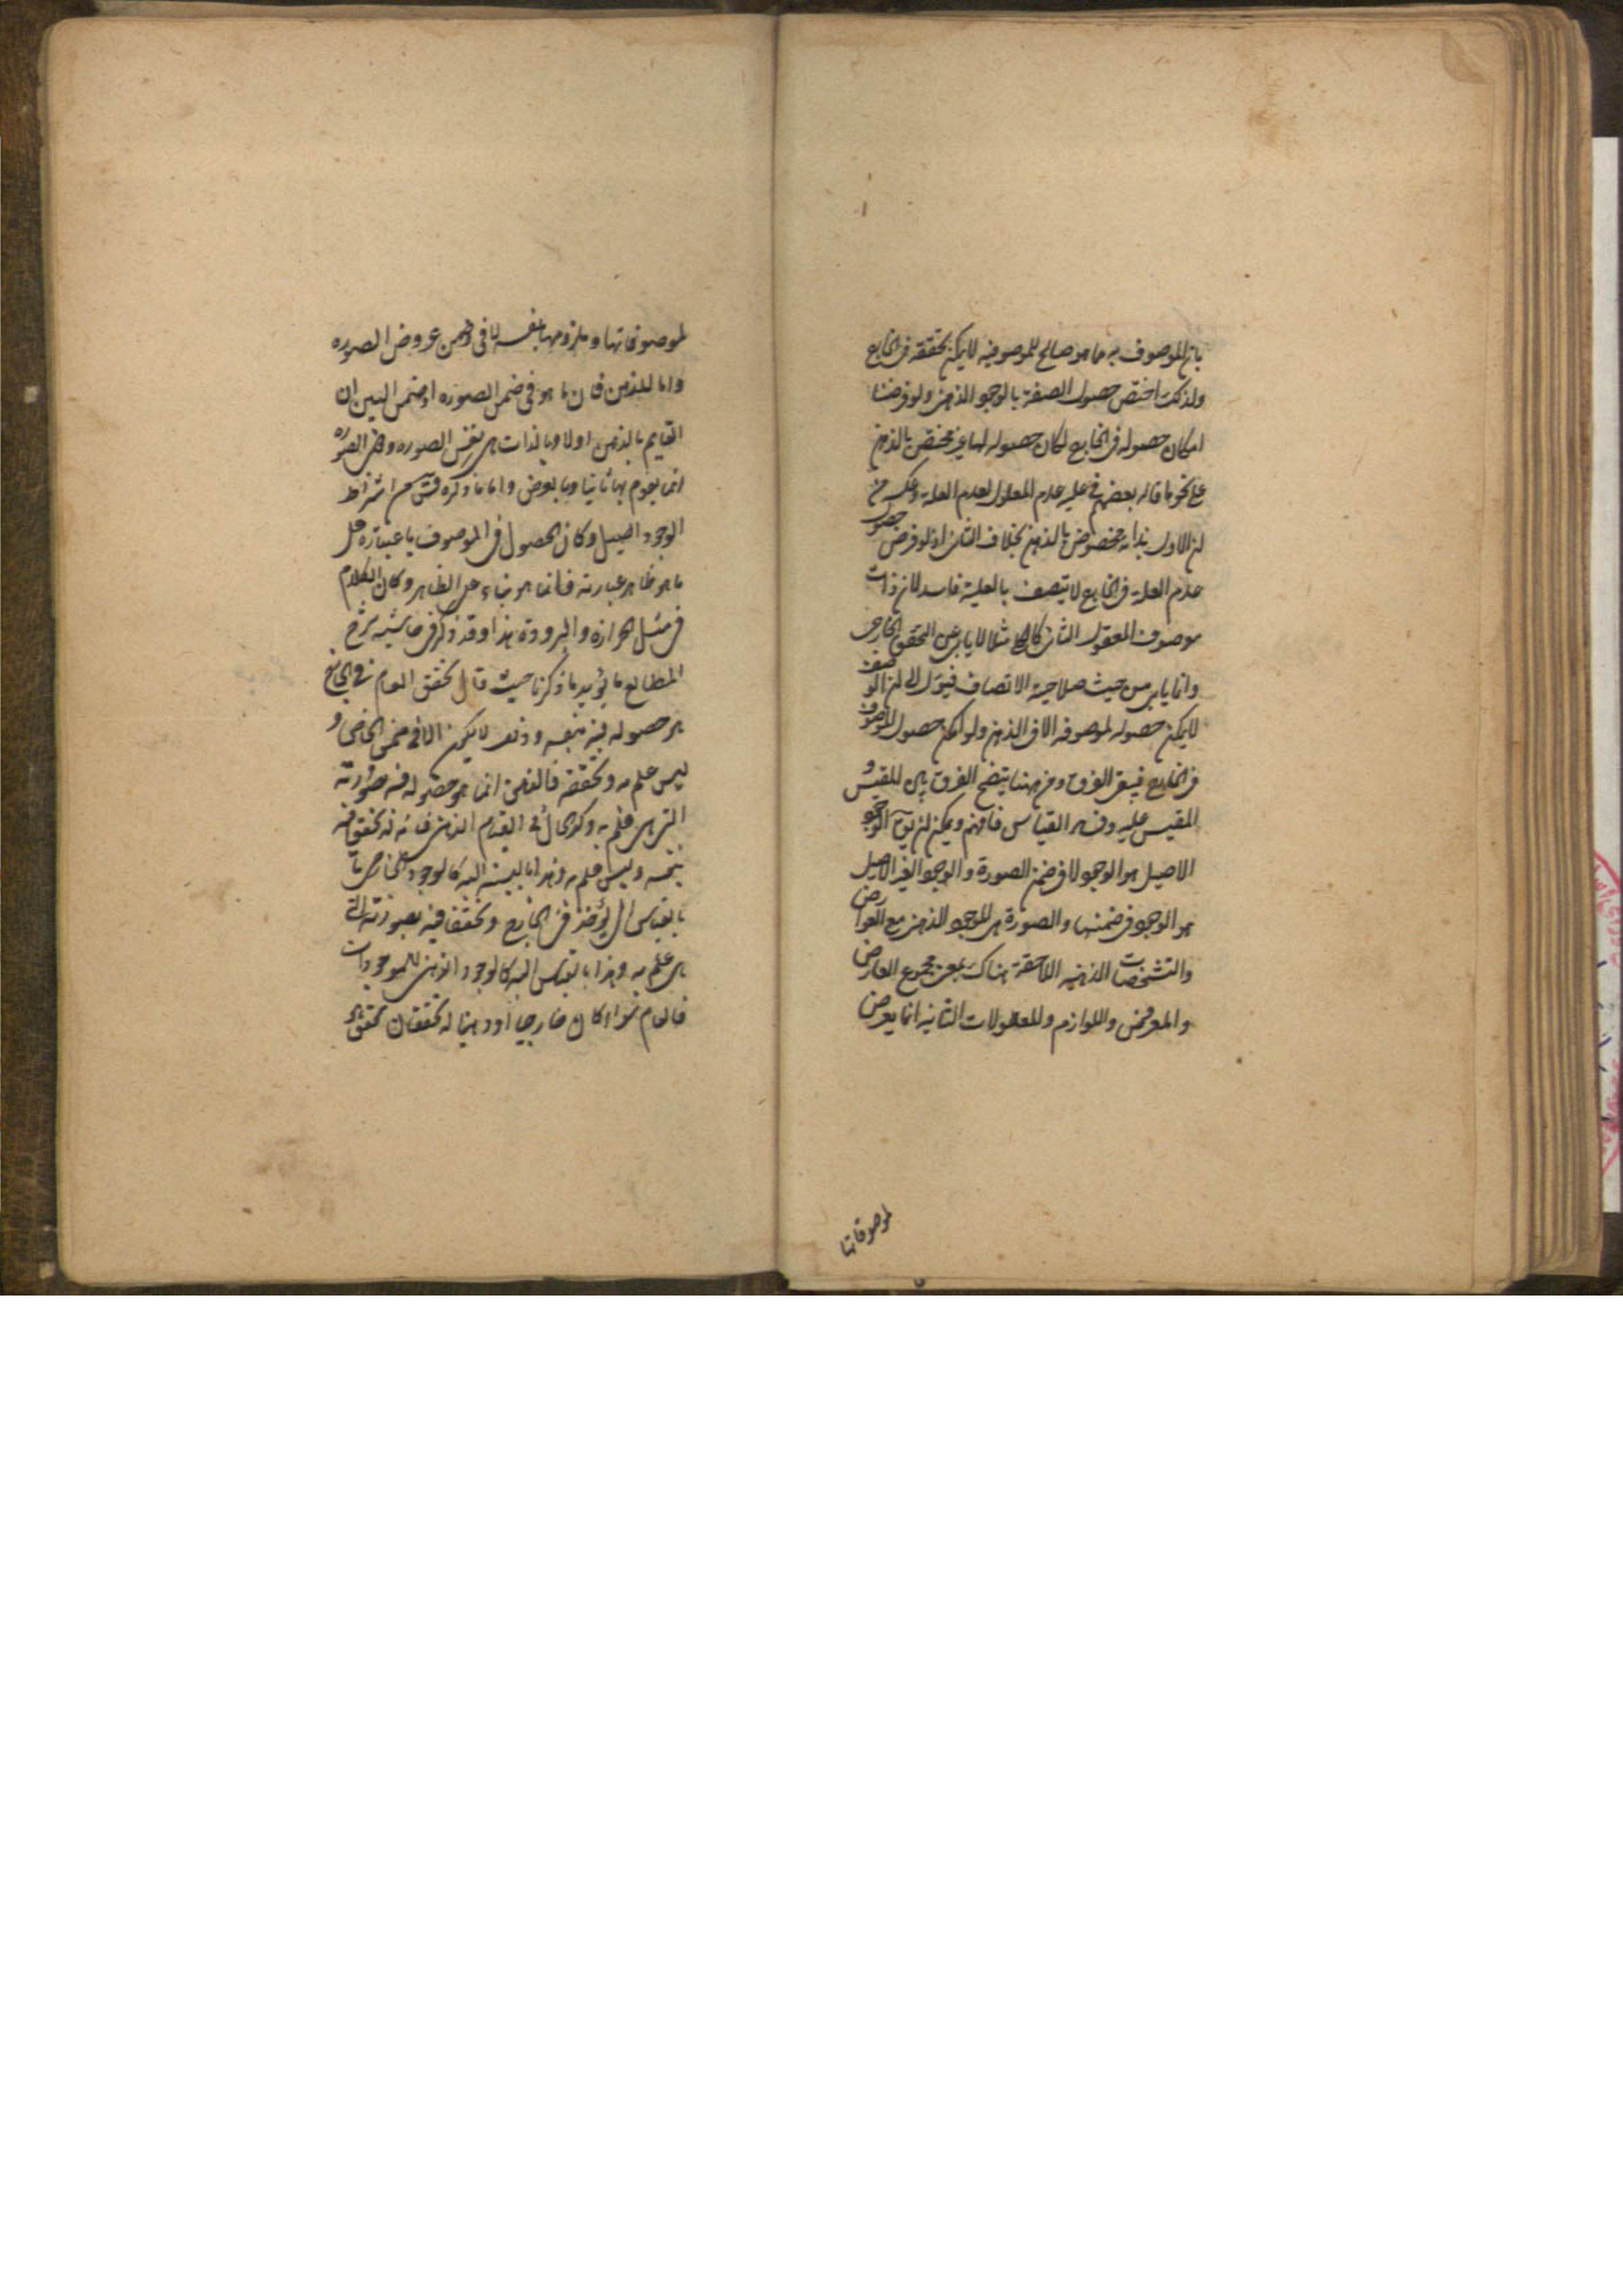 بان الموصوف به مما هو صالح للموصوفية لا يمكن تحققه في الخارج
ولذلك اختص حصول الصفة بالوجود الذهني ولو فرضنا
امكان حصوله في الخارج لكان حصوله لها غير مختص بالذهن
على نحو ما قاله بعضهم في علية عدم المعلول لعدم العلة وعكسه من
ان الاول بذاته مخصوص بالذهن بخلاف الثاني اذ لو فرض حصول
عدم العلة في الخارج لا يتصف بالعلية فاسد لان ذات
موصوف المعقول الثاني كالكلي مثلا لا يابى عن التحقق الخارجي
وانما يابى من حيث صلاحية الاتصاف فيؤل الى ان الوصف
لا يمكن حصوله لموصوفه الا في الذهن ولو امكن حصول الموصوف
في الخارج فيبقى الفرق ومن ههنا يتضح الفرق بين المقيس و
المقيس عليه وفساد القياس فافهم ويمكن ان يقال الوجود
الاصيل هو الوجود لا في ضمن الصورة والوجود الغير الاصيل
هو الوجود في ضمنها والصورة هي الموجود الذهني مع العوارض
والتشخصات الذهنية اللاحقة هناك بمعنى مجموع العارض
والمعروض واللوازم والمعقولات الثانية انما يعرض
لموصوفاتها
لموصوفاتها وملزومها بنفسها في ضمن عروض الصورة
واما للذهن فان ما هو في ضمن الصورة او ضمن البين ان
القايم بالذهن اولا وبالذات هي نفس الصورة وفي الصورة
انما يقوم بها ثانيا وبالعرض واما ما ذكره من اشتراط
الوجود اصيل وكان الحصول في الموصوف باعتباره على
ما هو ظاهر عبارته فانما هو بناء على الظاهر وكان الكلام
في مثل الحرارة والبرودة هذا وقد ذكر في حاشية شرح
المطالع ما يؤيد ما ذكرنا حيث قال تحقق العام في الخارج
هو حصوله فيه بنفسه وذلك لا يكون الا في ضمن الخاص و
ليس علم به وتحققه في الذهن انما هو حصوله فيه صورته
التي هي علم به وكذا الحال في العدم الذهني فانه له تحقق فيه
بنفسه وليس علم به وهذا بالنسبة اليه كالوجود الخارجي
بالقياس الى في الخارج وتحققا فيه بصورته التي
هي علم به وهذا بالقياس اليه كالوجود الذهني للموجودات
فالعام سواء كان خارجيا او ذهنيا له تحققان تحقق